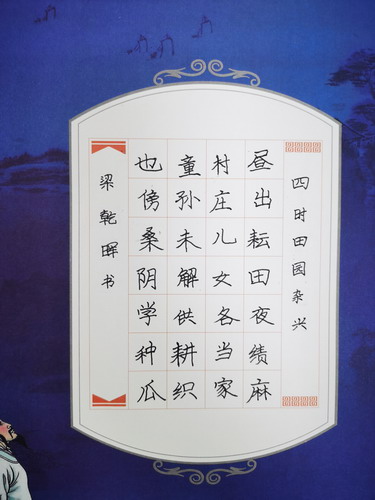 四时田园杂兴
昼出耘田夜绩麻
村庄儿女各当家
童孙未解供耕织
也傍桑阴学种瓜
梁乾晖书